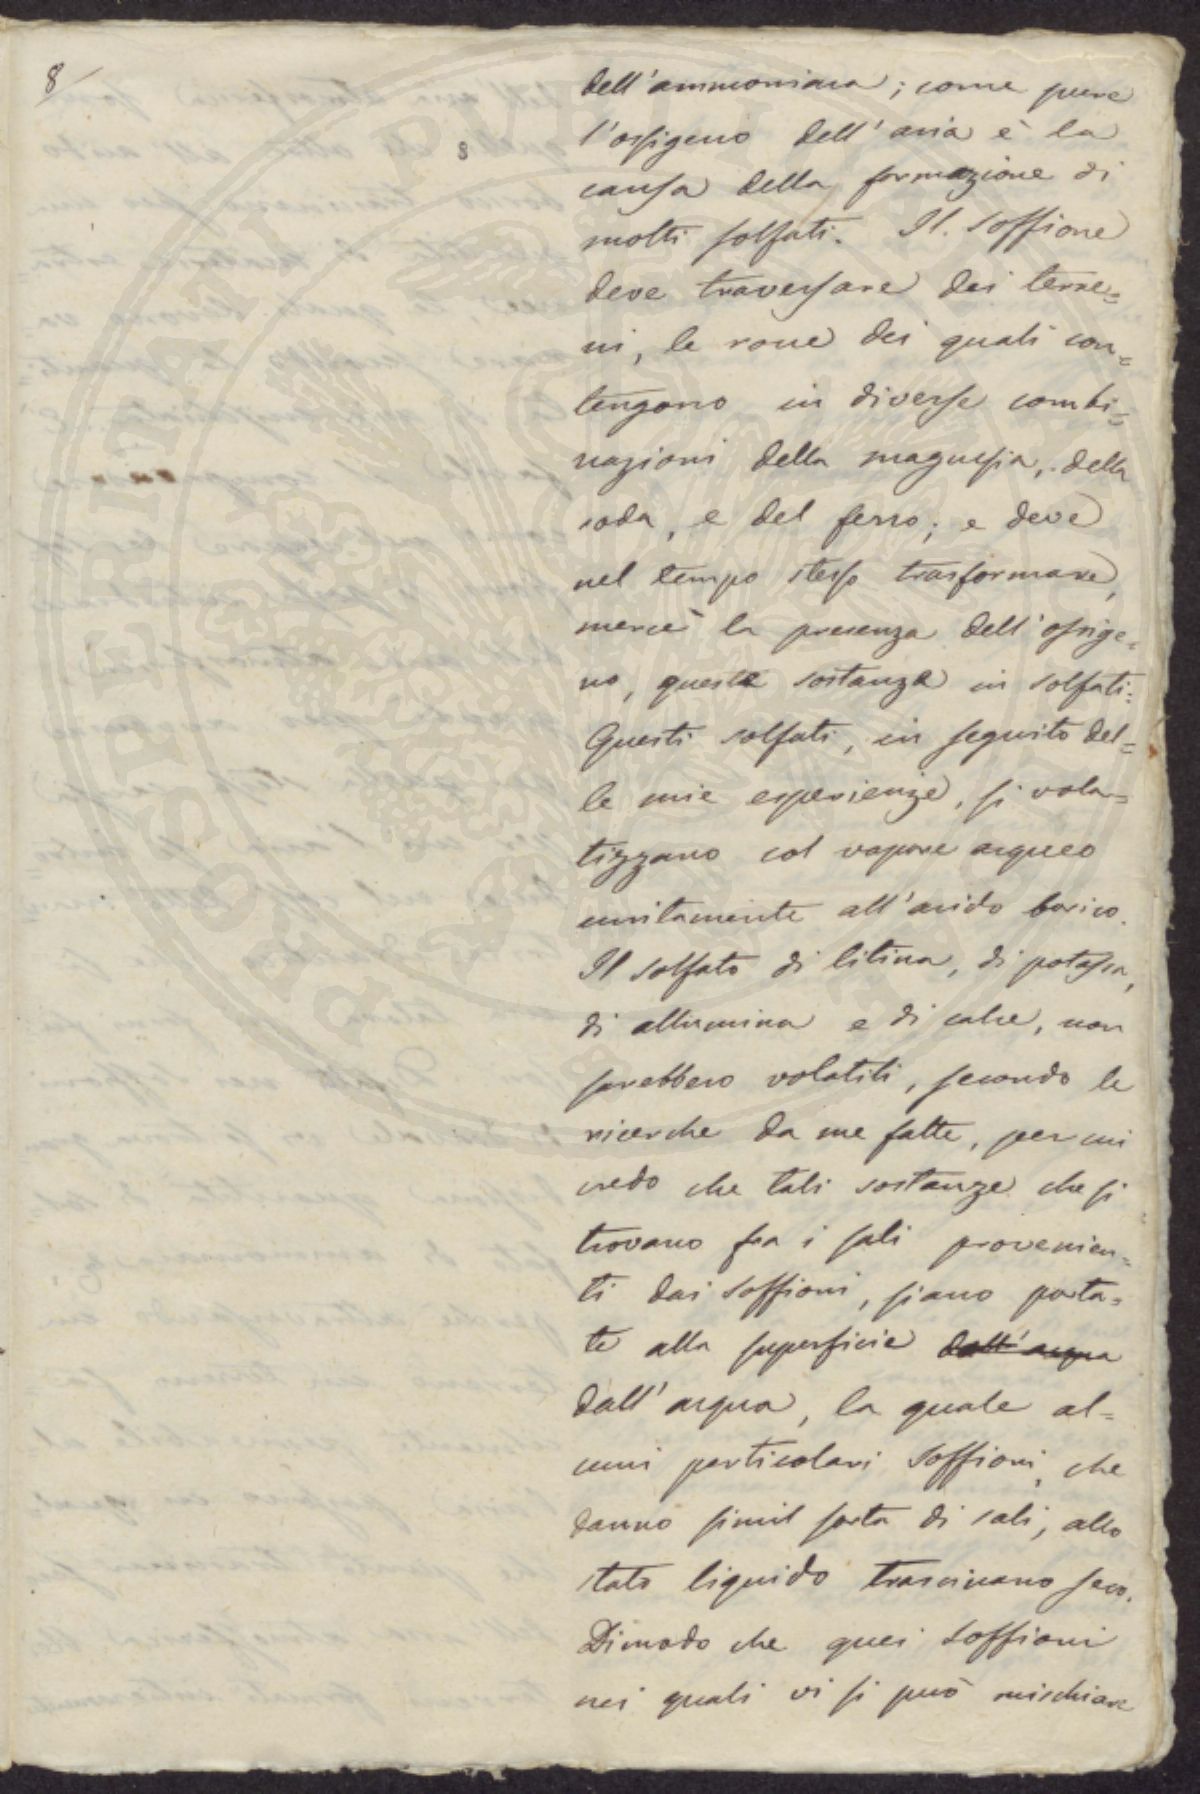 8
8
dell'ammoniaca; come pure
l'ossigeno dell'aria è la
causa della formazione di
molti solfati. Il Soffione
deve traversare dei terre=
ni, le rocce dei quali con=
tengono in diverse combi=
nazioni della magnesia, della
soda, e del ferro; e deve
nel tempo stesso trasformare,
mercè la presenza dell'ossige=
no, queste sostanze in solfati.
Questi solfati, in seguito del=
le mie esperienze, si vola=
tizzano col vapore acqueo
unitamente all'acido borico.
Il solfato di litina, di potassa,
di allumina e di calce, non
sarebbero volatili, secondo le
ricerche da me fatte, per cui
credo che tali sostanze che si
trovano fra i sali provenien=
ti dai Soffioni, siano porta=
te alla superficie dall'acqua
dall'acqua, la quale al=
cuni particolari Soffioni, che
danno simil sorta di sali, allo
stato liquido trascinano seco.
Dimodo che quei Soffioni
nei quali vi si può mischiare
PROSPERITAT PUBLI